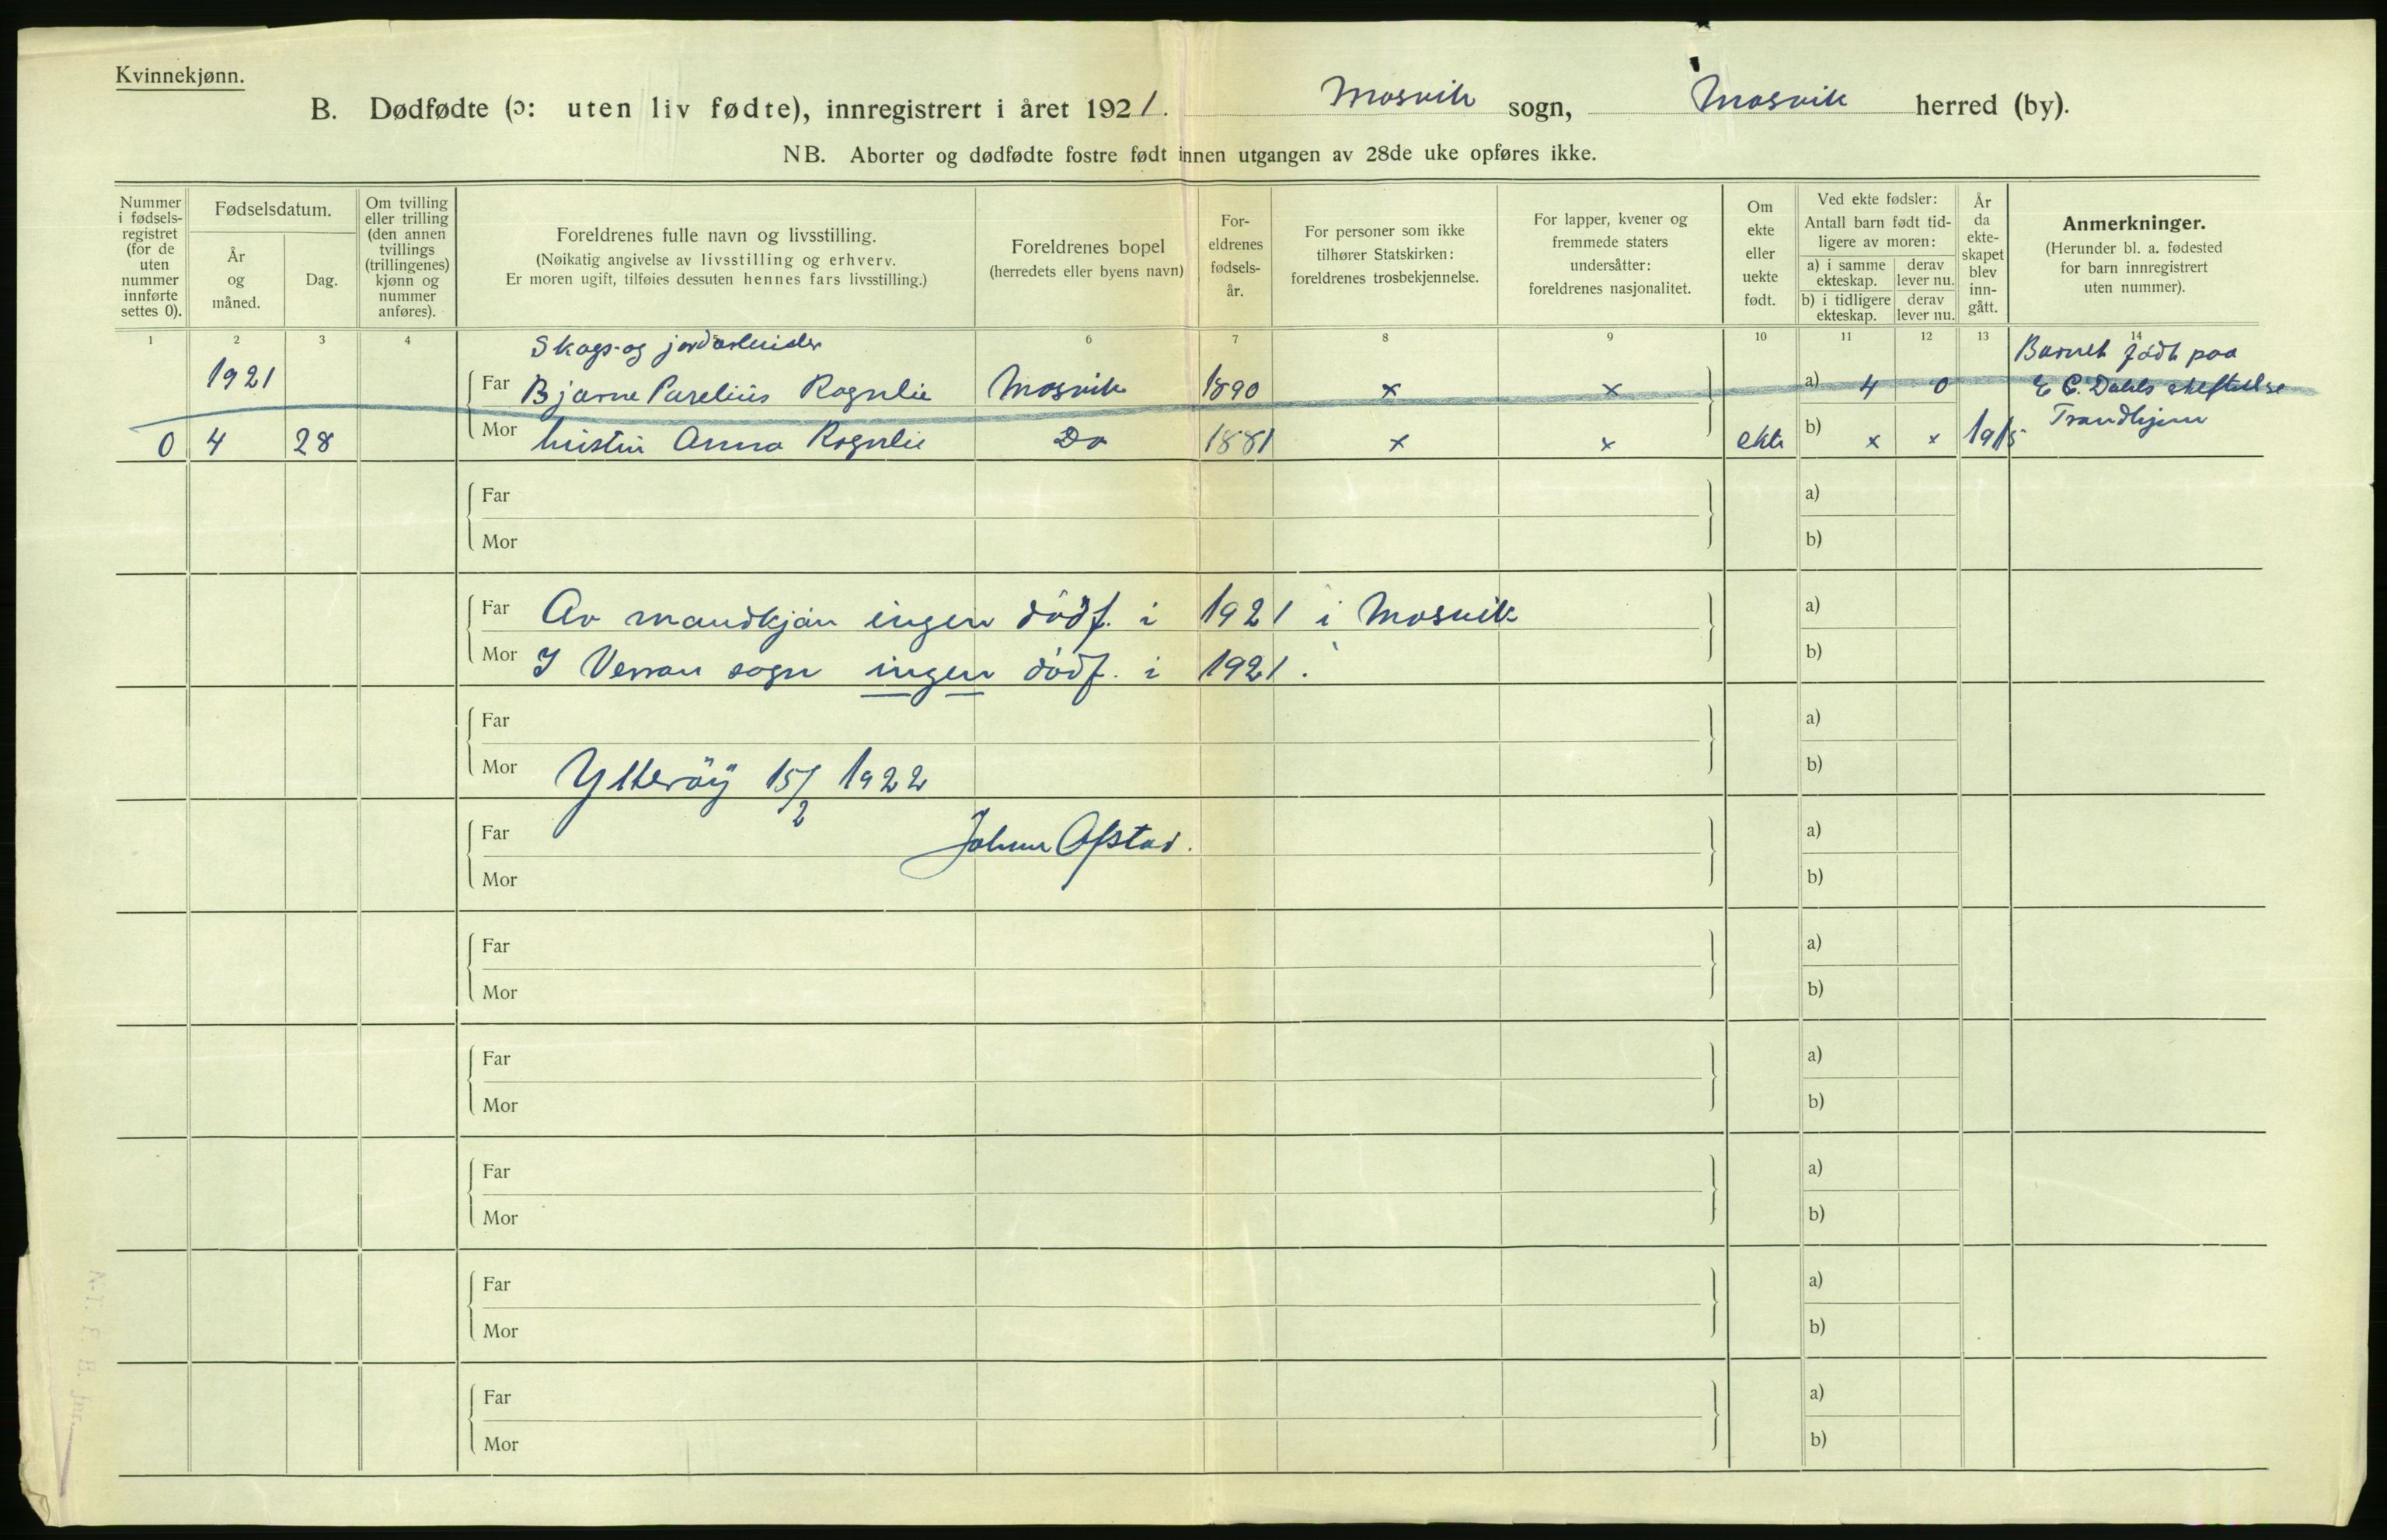 Kvinnekjønn.
B. Dødfødte (ɔ: uten liv fødte), innregistrert i året 1921. Mosvik sogn, Mosvik herred (by).
NB. Aborter og dødfødte fostre født innen utgangen av 28de uke opføres ikke.
Nummer i fødsels-registret (for de uten nummer innførte settes 0).
Fødselsdatum.
År og måned.
Dag.
Om tvilling eller trilling (den annen tvillings (trillingenes) kjønn og nummer anføres).
Foreldrenes fulle navn og livsstilling.
(Nøikatig angivelse av livsstilling og erhverv.
Er moren ugift, tilføies dessuten hennes fars livsstilling.)
Foreldrenes bopel
(herredets eller byens navn)
For-eldrenes fødsels-år.
For personer som ikke tilhører Statskirken: foreldrenes trosbekjennelse.
For lapper, kvener og fremmede staters undersåtter: foreldrenes nasjonalitet.
Om ekte eller uekte født.
Ved ekte fødsler:
Antall barn født tid-ligere av moren:
a) i samme ekteskap. derav lever nu.
b) i tidligere ekteskap. derav lever nu.
År da ekte-skapet blev inn-gått.
Anmerkninger.
(Herunder bl. a. fødested for barn innregistrert uten nummer).
1 2 3 4 6 7 8 9 10 11 12 13 14
Skogs- og jordarbeider
Barnet født paa
1921 Far Bjarne Parelius Rognlie Mosvik 1890 x x a) 4 0 E C. Dahls stiftelse
Trondhjem
0 4 28 Mor Kristin Anna Rognlie Do 1881 x x ekte b) x x 1915
Far a)
Mor b)
Far Av mandkjøn ingen dödf. i 1921 i Mosvik a)
Mor I Verran sogn ingen dödf. i 1921. b)
Far a)
Mor Ytteröy 15/2 1922 b)
Far Johan Ofstad. a)
Mor b)
Far a)
Mor b)
Far a)
Mor b)
Far a)
Mor b)
Far a)
Mor b)
Far a)
Mor b)